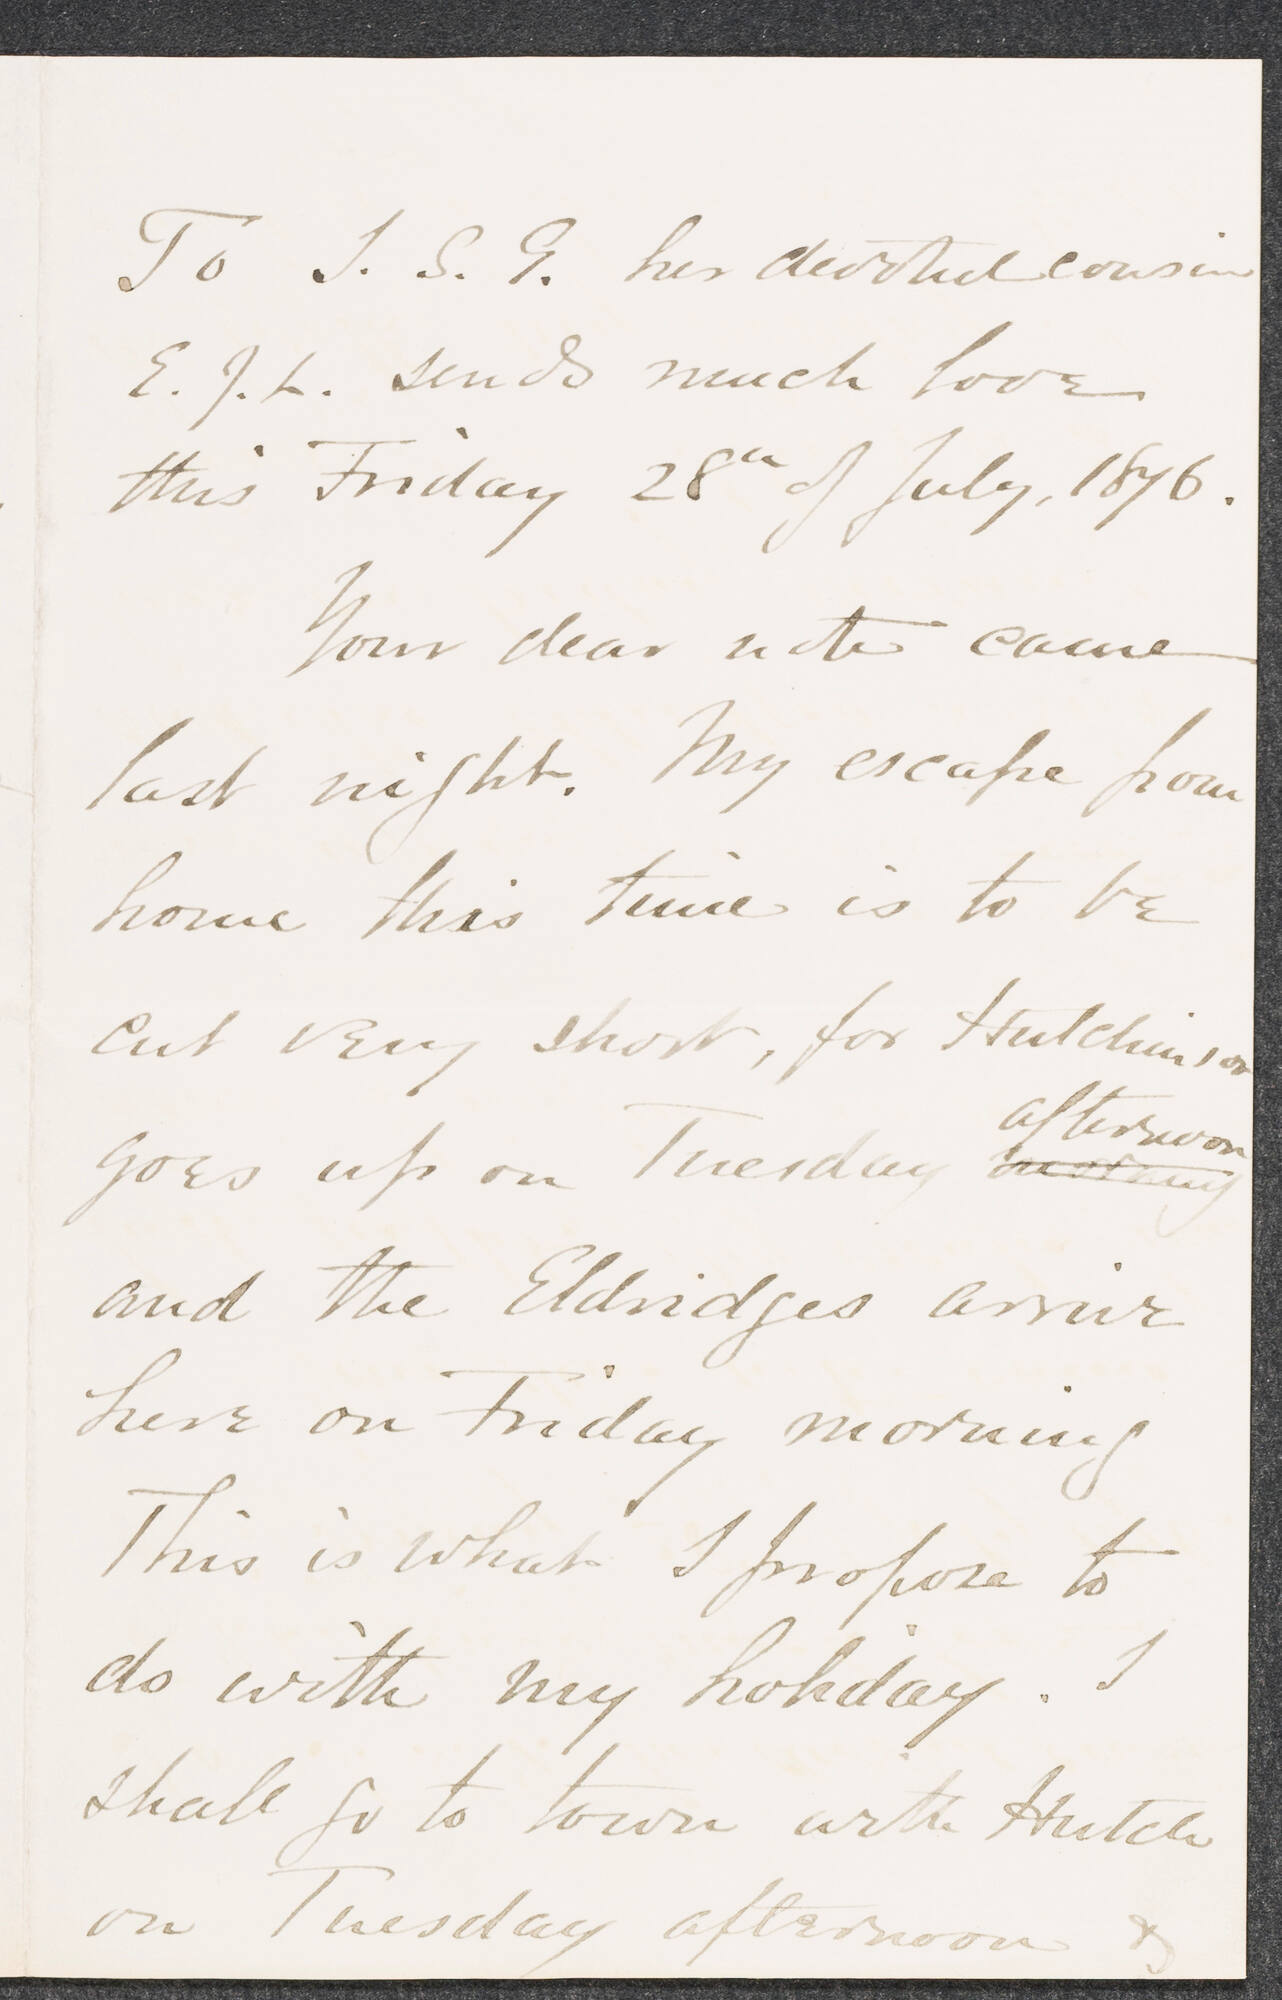 To I. S. G. her devoted cousin
E. J. L. sends much love
this Friday 28th of July, 1876.
Your dear note came
last night. My escape from
home this time is to be
cut very short, for Hutchinson
afternoon
goes up on Tuesday morning
and the Eldridges arrive
here on Friday morning
This is what I propose to
do with my holiday. I
shall go to town with Hutch
on Tuesday afternoon &